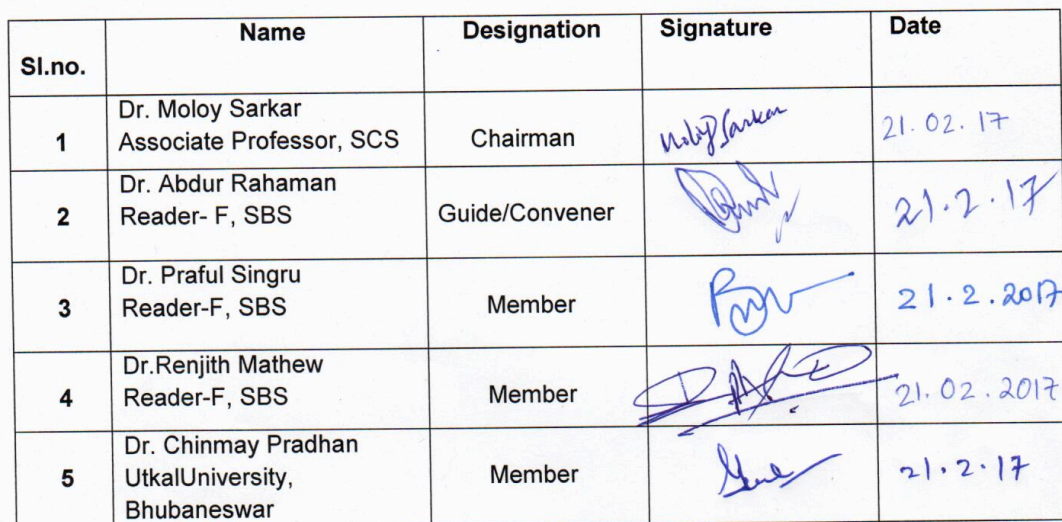 Sl.no. Name Designation Signature Date
1 Dr. Moloy Sarkar
Associate Professor, SCS Chairman Moloy Sarkar 21.02.17
2 Dr. Abdur Rahaman
Reader- F, SBS Guide/Convener 21.2.17
3 Dr. Praful Singru
Reader-F, SBS Member 21.2.2017
4 Dr.Renjith Mathew
Reader-F, SBS Member 21.02.2017
5 Dr. Chinmay Pradhan
UtkalUniversity, Member 21.2.17
Bhubaneswar